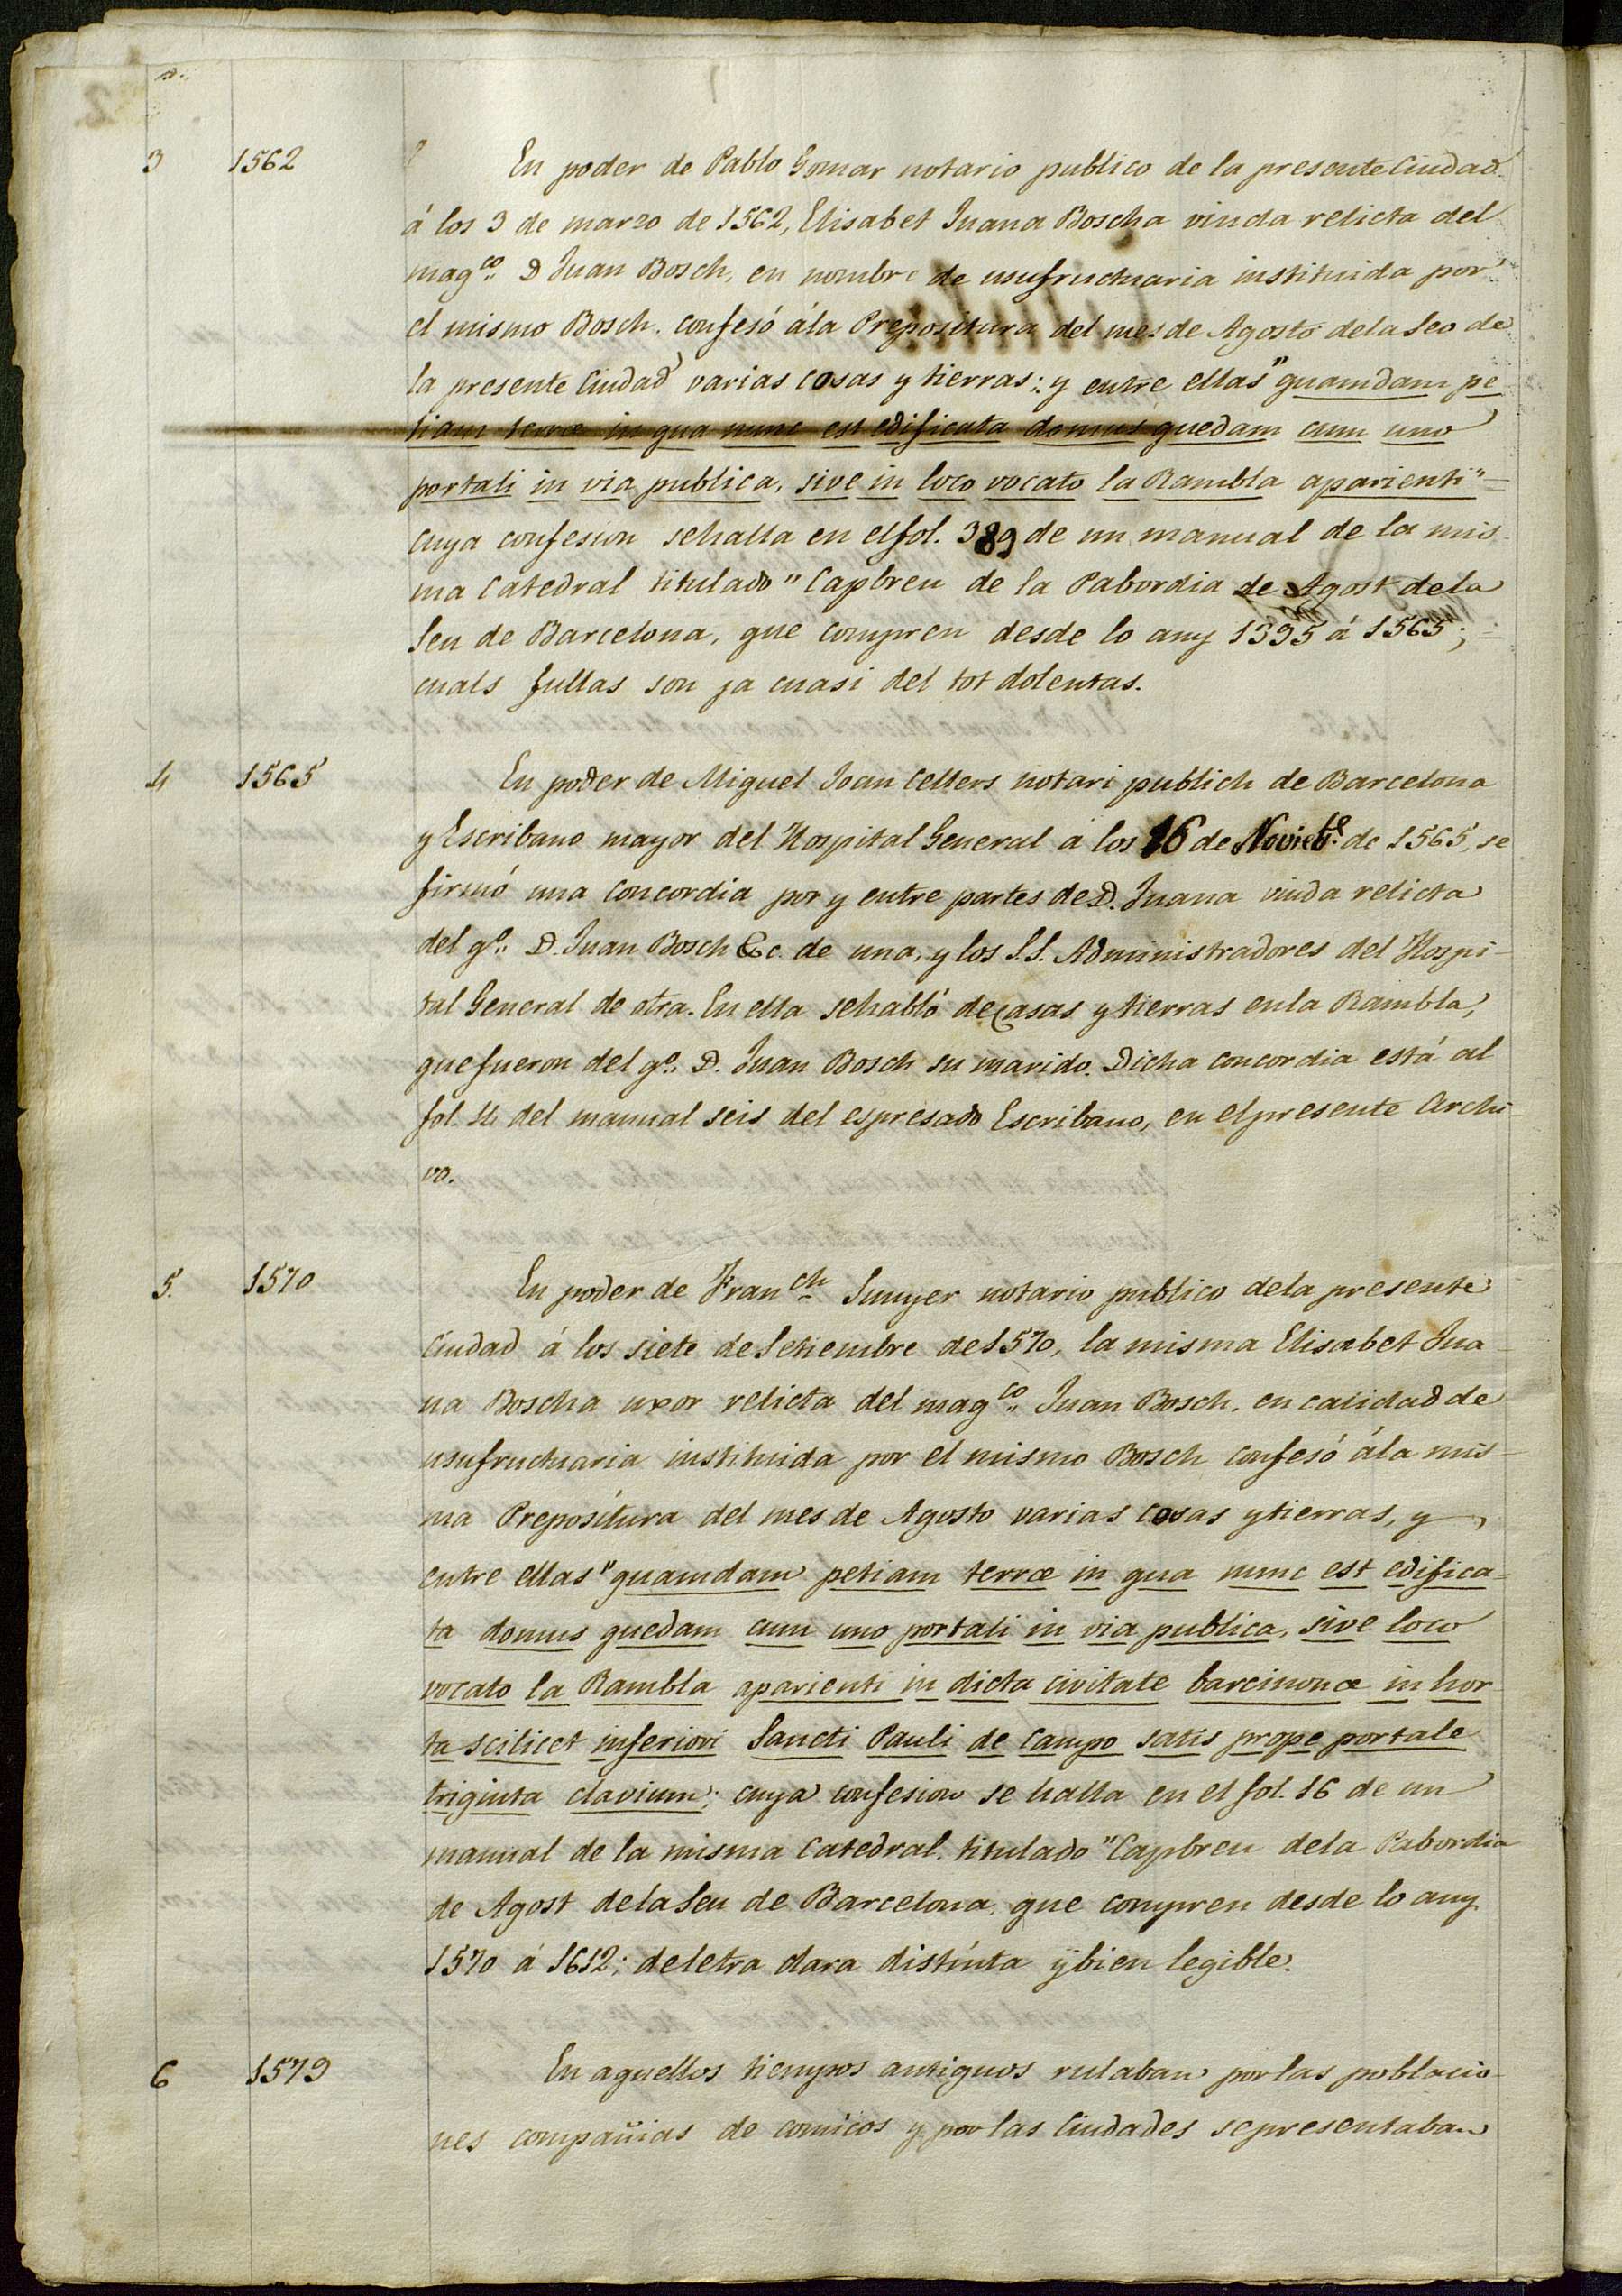 3 1562 En poder de Pablo Gomar notario publico de la presente Ciudad
á los 3 de marzo de 1562, Elisabet Juana Boscha viuda relicta del
mag.co D Juan Bosch, en nombre de usufructuaria instituida por
el mismo Bosch, confesó á la Prepositura del mes de Agosto de la Seo de
la presente Ciudad varias cosas y tierras; y entre ellas "quamdam pe
tiam terræ in qua nunc est edificata domus quedam cum uno
portali in via publica, sive in loco vocato la Rambla aparienti" =
cuya confesion se halla en el fol. 389 de un manual de la mis-
ma Catedral titulado "Capbreu de la Pabordia de Agost de la
Seu de Barcelona, que compren desde lo any 1395 á 1565; =
cuals fullas son ja cuasi del tot dolentas.
4 1565 En poder de Miguel Joan Cellers notari publich de Barcelona
y Escribano mayor del Hospital General a los 16 de Novie.bre de 1565, se
firmó una concordia por y entre partes de D. Juana viuda relicta
del g.o D. Juan Bosch &c. de una, y los S.S. Administradores del Hospi-
tal General de otra. En ella se habló de casas y tierras en la Rambla,
que fueron del g.o D. Juan Bosch su marido. Dicha concordia está al
fol. 14 del manual seis del espresado Escribano, en el presente Archi-
vo.
5. 1570 En poder de Fran.ch Sunyer notario publico de la presente
Ciudad á los siete de Setiembre de 1570, la misma Elisabet Jua-
na Boscha uxor relicta del mag.co Juan Bosch, en calidad de
usufructuaria instituida por el mismo Bosch confesó á la mis-
ma Prepositura del mes de Agosto varias cosas y tierras, y
entre ellas "quamdam petiam terræ in qua nunc est edifica-
ta domus quedam cum uno portali in via publica, sive loco
vocato la Rambla aparienti in dicta civitate barcinonæ in hor-
ta scilicet inferiori Sancti Pauli de Campo satis prope portale
triginta clavium; cuya confesion se halla en el fol. 16 de un
manual de la misma Catedral, titulado "Capbreu de la Pabordia
de Agost de la Seu de Barcelona, que compren desde lo any
1570 á 1612; de letra clara distinta y bien legible.
6 1579 En aquellos tiempos antiguos rulaban por las poblacio-
nes compañias de comicos y por las Ciudades representaban